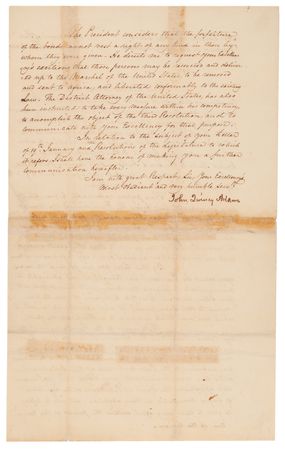 The President considers that the forfeiture
of the bonds cannot vest a right of any kind in those by
whom they were given. He directs me to request your
exertions that those persons may be secured and deliver-
ed up to the Marshal of the United States to be removed
and sent to Africa, and liberated conformably to the existing
Law. The District Attorney of the United States, has also
been instructed to take every measure within his competency
to accomplish the object of the Third Resolution, and to
communicate with your Excellency for that purpose.
In relation to the subject of your Letter
of 19th January and Resolutions of the Legislature to which
it refers I shall have the honor of making you a further
communication hereafter.
I am with great Respect, Sir, Your Excellency's
most Obedient and very humble Servt.
John Quincy Adams